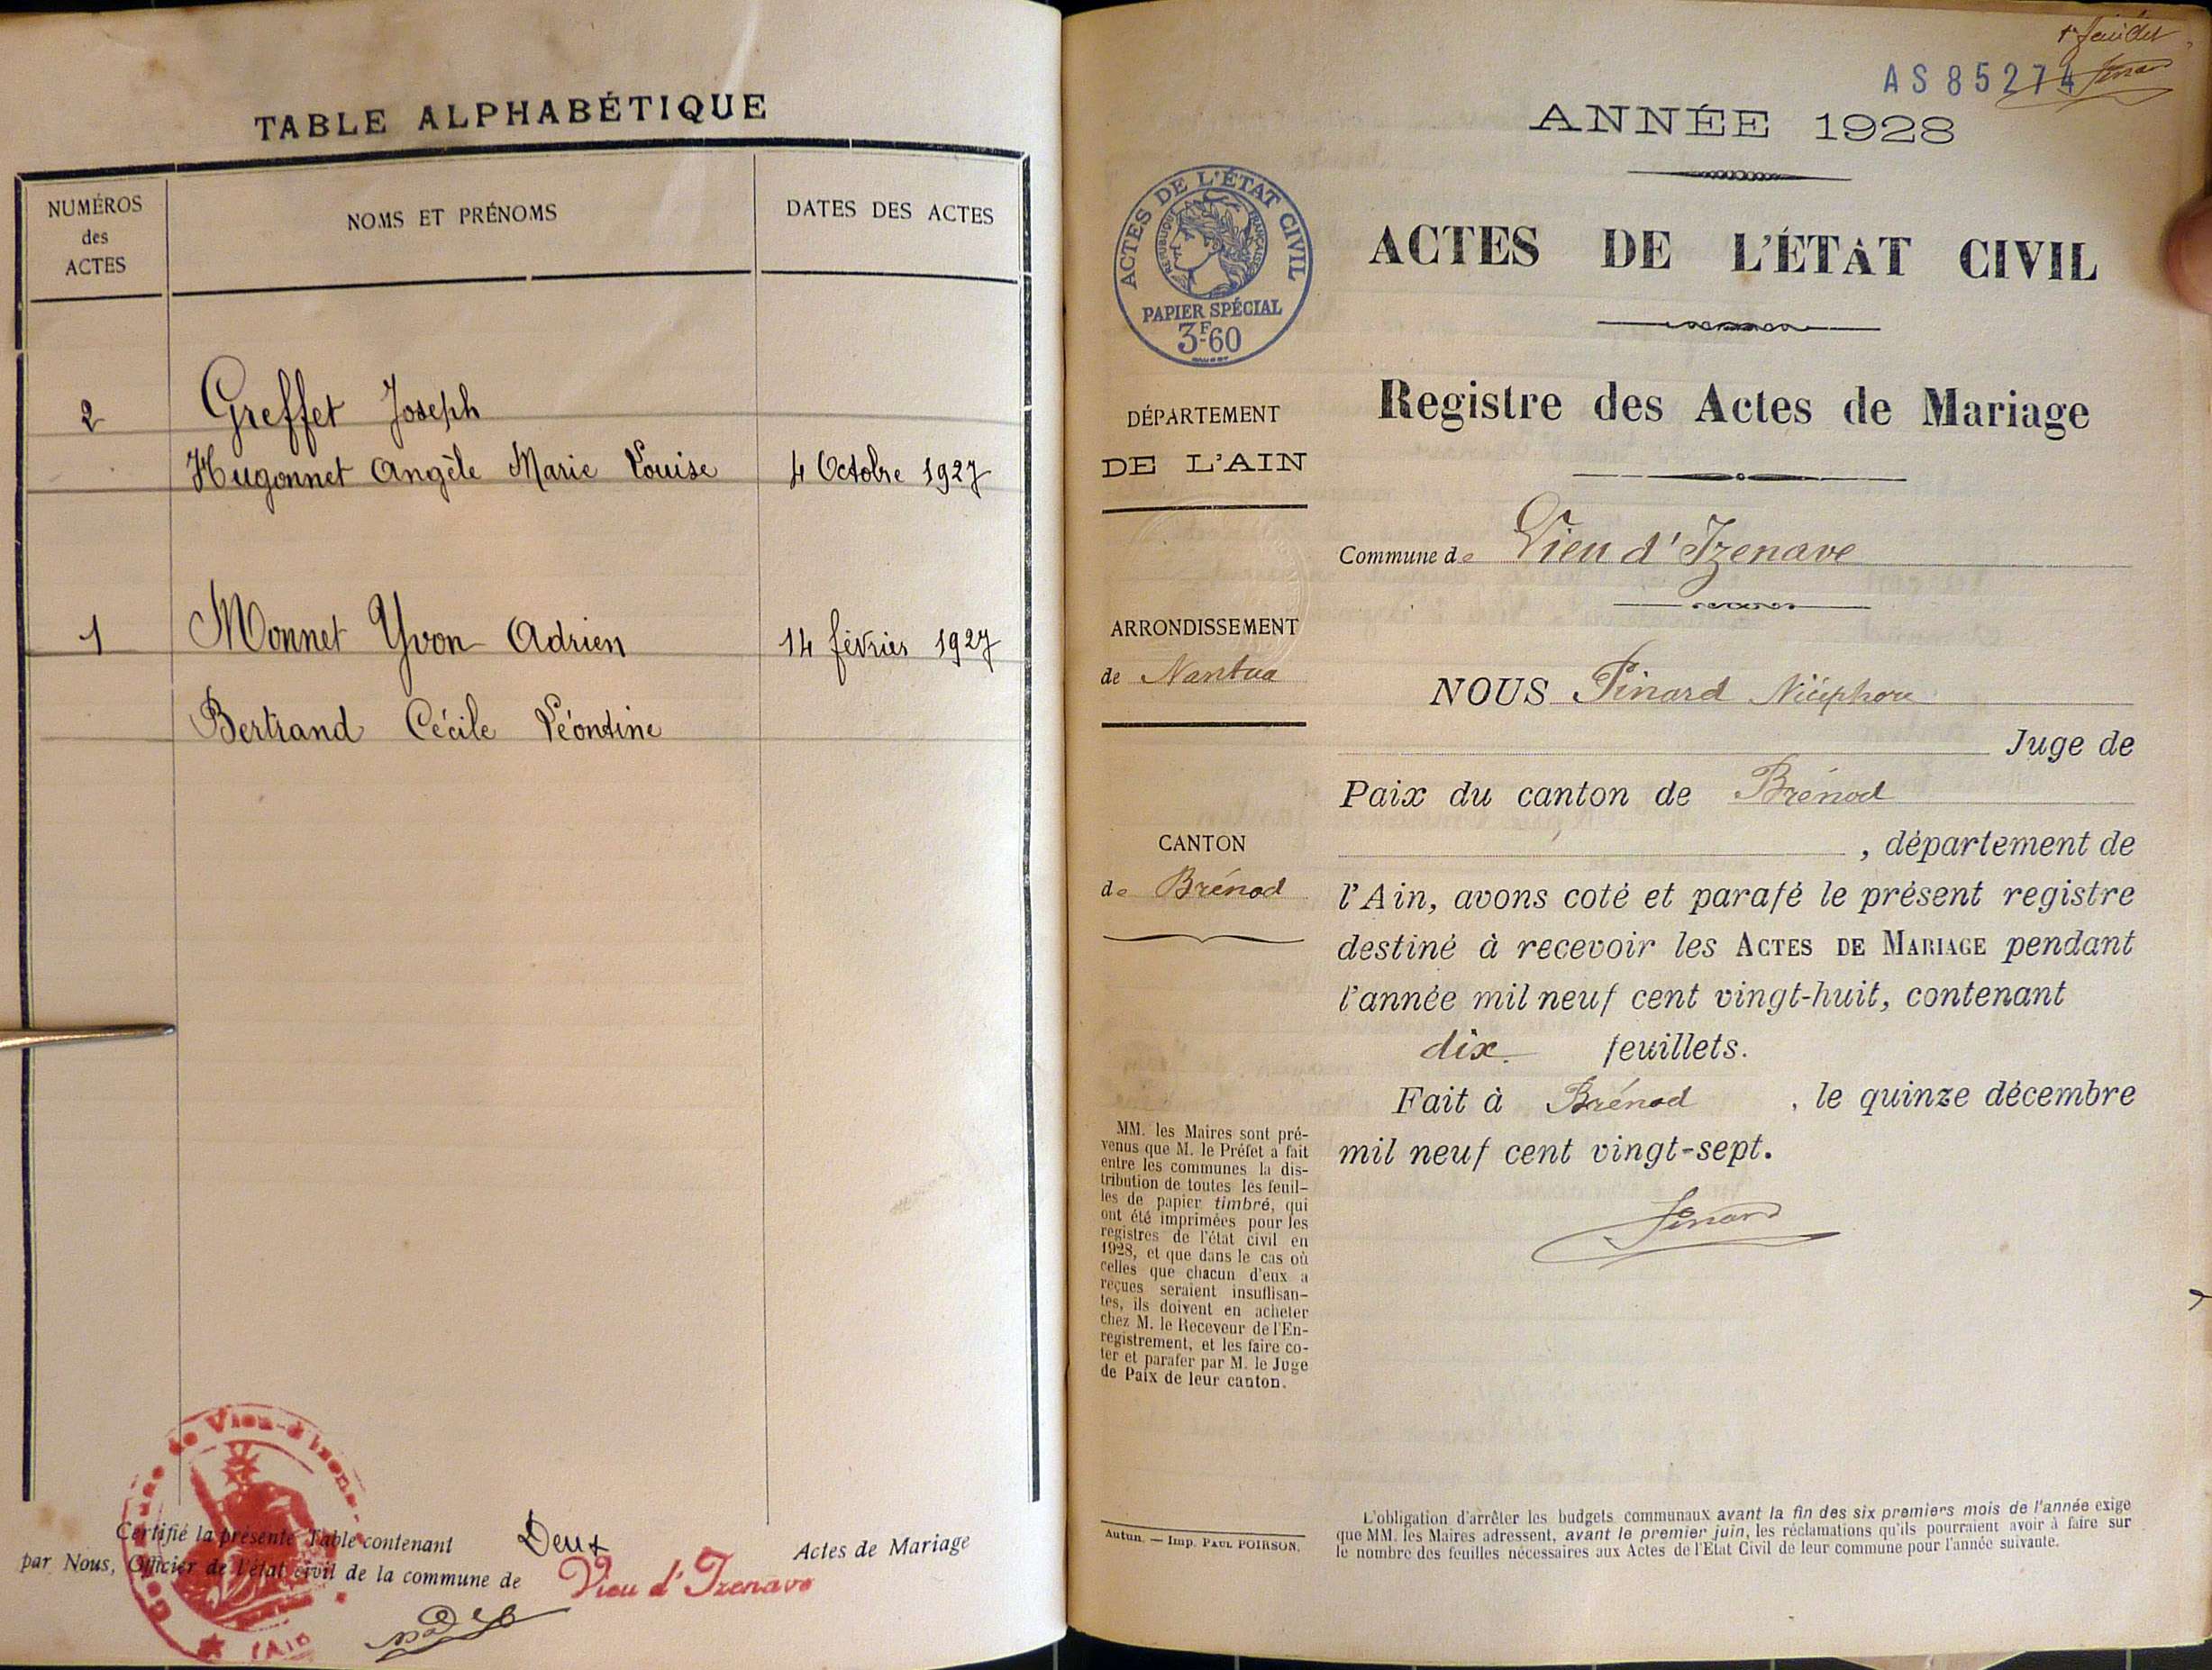 TABLE ALPHABÉTIQUE
NUMÉROS
des
ACTES
NOMS ET PRÉNOMS
DATES DES ACTES
2 Greffet Joseph
Hugonnet Angèle Marie Louise 4 Octobre 1927
1 Monnet Yvon Adrien 14 février 1927
Bertrand Cécile Léontine
Certifié la présente Table contenant Deux Actes de Mariage
par Nous, Officier de l'état civil de la commune de Vieu d'Izenave
1er feuillet
AS 85274
ANNÉE 1928
ACTES DE L'ÉTAT CIVIL
RÉPUBLIQUE FRANÇAISE
PAPIER SPÉCIAL
3F60
ACTES DE L'ÉTAT CIVIL
Registre des Actes de Mariage
DÉPARTEMENT
DE L'AIN
Commune de Vieu d'Izenave
ARRONDISSEMENT
de Nantua
NOUS Pinard Nicéphore
Juge de
Paix du canton de Brénod
, département de
CANTON
de Brénod
l'Ain, avons coté et parafé le présent registre
destiné à recevoir les ACTES DE MARIAGE pendant
l'année mil neuf cent vingt-huit, contenant
dix feuillets.
Fait à Brénod , le quinze décembre
mil neuf cent vingt-sept.
Pinard
MM. les Maires sont pré-
venus que M. le Préfet a fait
entre les communes la dis-
tribution de toutes les feuil-
les de papier timbré, qui
ont été imprimées pour les
registres de l'état civil en
1928, et que dans le cas où
celles que chacun d'eux a
reçues seraient insuffisan-
tes, ils doivent en acheter
chez M. le Receveur de l'En-
registrement, et les faire co-
ter et parafer par M. le Juge
de Paix de leur canton.
Autun. — Imp. PAUL POIRSON.
L'obligation d'arrêter les budgets communaux avant la fin des six premiers mois de l'année exige
que MM. les Maires adressent, avant le premier juin, les réclamations qu'ils pourraient avoir à faire sur
le nombre des feuilles nécessaires aux Actes de l'Etat Civil de leur commune pour l'année suivante.